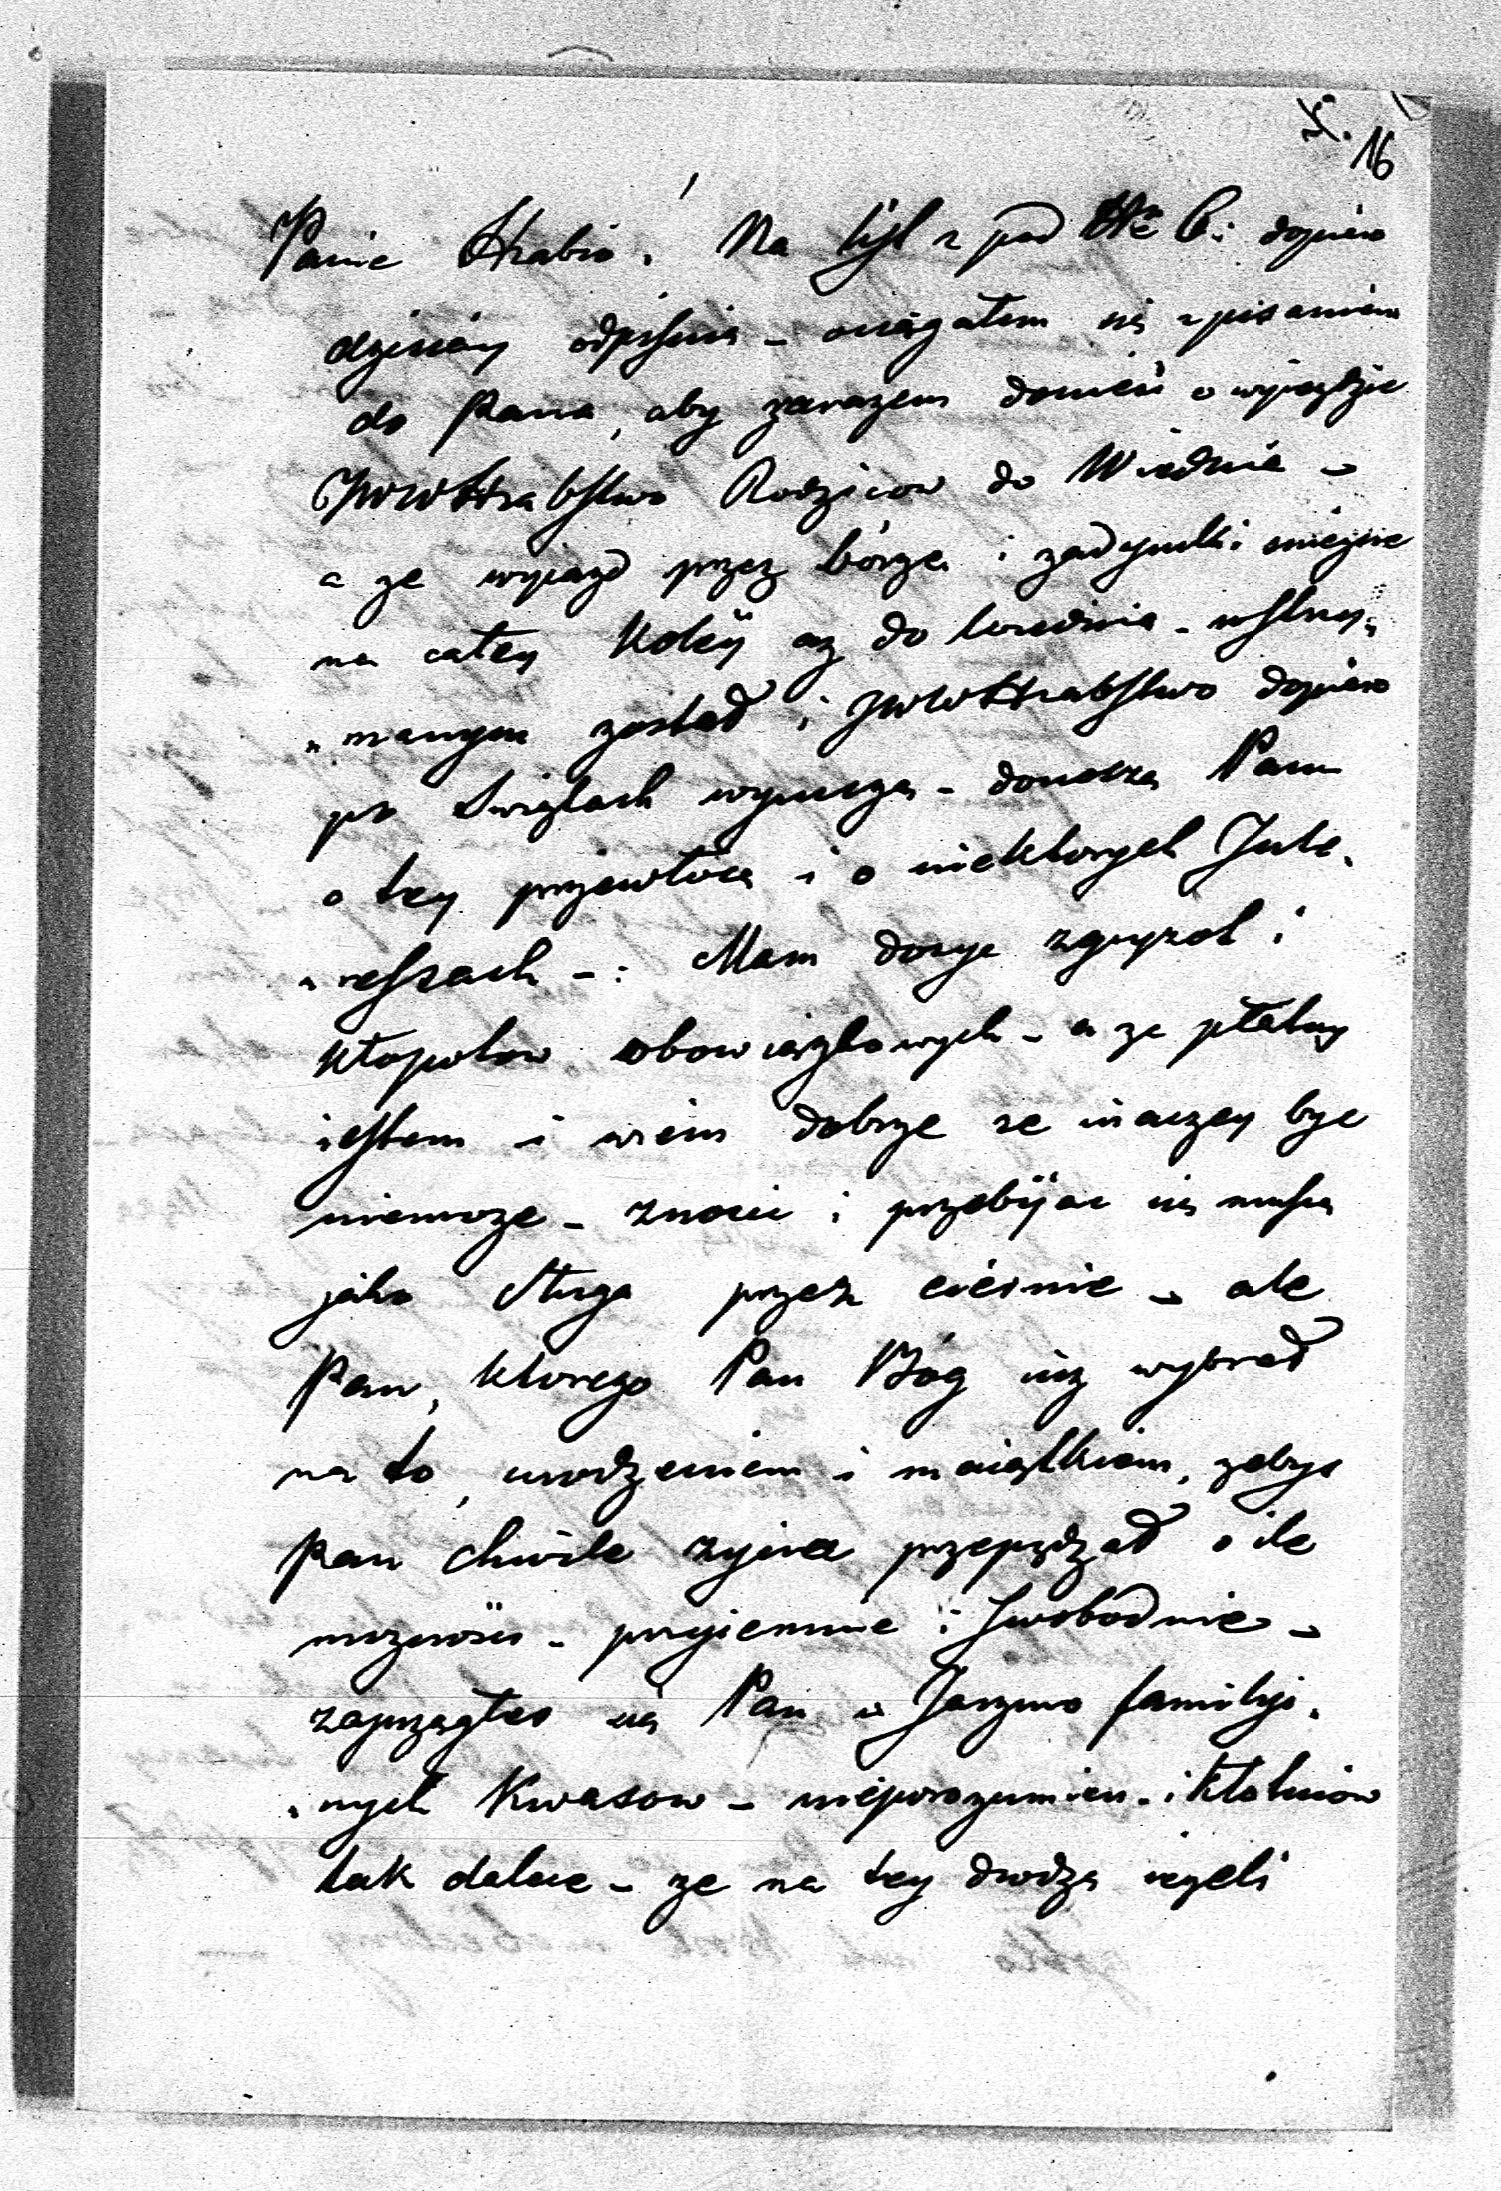 16
Panie Hrabio! Na list z pod dopiero
dzisiay odpisuię - ociągałem się z pisaniem
do Pana, aby zarazem donieść o wyieździe
JWWHrabstwa Rodzicow do Wiednia -
a ze wyiazd przez burze i zadymki snieżne
na całey Koleÿ az do Wiednia - wstrzy„
„manym został i JWWHrabstwo dopiero
po Swiętach wyieżdza - donoszę Panu
o tey przewłoce i o niektorych Inte„
„ressach -: Mam dosyc zgryzot i
kłopotow obowiązkowych - a ze płatny
iestem i wiem dobrze ze inaczey byc
niemoze - znosic i przebÿac się muszę
jako sługa przez ciernie - ale
Pan, ktorego Pan Bóg iuz wybrał
na to, urodzeniem i maiątkiem, zebys
Pan chwile zycia przepędzał o ile
moznosci - przyiemnie i swobodnie -
zaprzągłes się Pan w Jarzmo familiy„
„nych Kwasow - nieporozumien - i kłotniow
tak dalece - ze na tey drodze iezeli